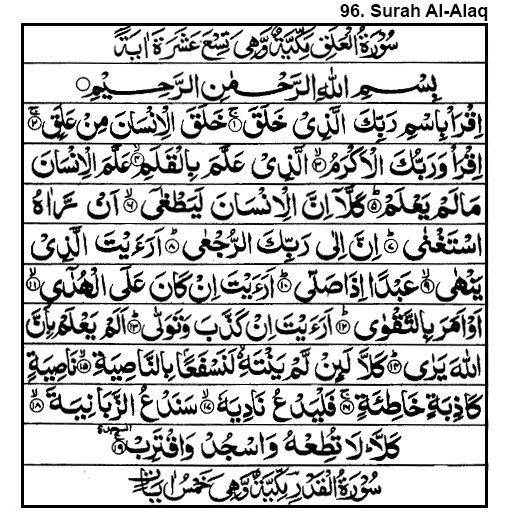 96. Surah Al-Alaq
سُوْرَةُ الْعَلَقِ مَكِّيَّةٌ وَّهِيَ تِسْعَ عَشْرَةَ اٰيَةً
بِسْمِ اللّٰهِ الرَّحْمٰنِ الرَّحِيْمِ
اِقْرَاْ بِاسْمِ رَبِّكَ الَّذِيْ خَلَقَ ۚ﴿۱﴾ خَلَقَ الْاِنْسَانَ مِنْ عَلَقٍ ۚ﴿۲﴾
اِقْرَاْ وَرَبُّكَ الْاَكْرَمُ ۙ﴿۳﴾ الَّذِيْ عَلَّمَ بِالْقَلَمِ ۙ﴿۴﴾ عَلَّمَ الْاِنْسَانَ
مَا لَمْ يَعْلَمْ ؕ﴿۵﴾ كَلَّاۤ اِنَّ الْاِنْسَانَ لَيَطْغٰۤى ۙ﴿۶﴾ اَنْ رَّاٰهُ
اسْتَغْنٰى ؕ﴿۷﴾ اِنَّ اِلٰى رَبِّكَ الرُّجْعٰى ؕ﴿۸﴾ اَرَءَيْتَ الَّذِيْ
يَنْهٰى ۙ﴿۹﴾ عَبْدًا اِذَا صَلّٰى ؕ﴿۱۰﴾ اَرَءَيْتَ اِنْ كَانَ عَلَى الْهُدٰۤى ۙ﴿۱۱﴾
اَوْ اَمَرَ بِالتَّقْوٰى ؕ﴿۱۲﴾ اَرَءَيْتَ اِنْ كَذَّبَ وَتَوَلّٰى ؕ﴿۱۳﴾ اَلَمْ يَعْلَمْ بِاَنَّ
اللّٰهَ يَرٰى ؕ﴿۱۴﴾ كَلَّا لَئِنْ لَّمْ يَنْتَهِ ۙ لَنَسْفَعًۢا بِالنَّاصِيَةِ ۙ﴿۱۵﴾ نَاصِيَةٍ
كَاذِبَةٍ خَاطِئَةٍ ۚ﴿۱۶﴾ فَلْيَدْعُ نَادِيَهٗ ۙ﴿۱۷﴾ سَنَدْعُ الزَّبَانِيَةَ ۙ﴿۱۸﴾
كَلَّا ؕ لَا تُطِعْهُ وَاسْجُدْ وَاقْتَرِبْ ۩﴿۱۹﴾ السجدة
سُوْرَةُ الْقَدْرِ مَكِّيَّةٌ وَّهِيَ خَمْسُ اٰيَاتٍ